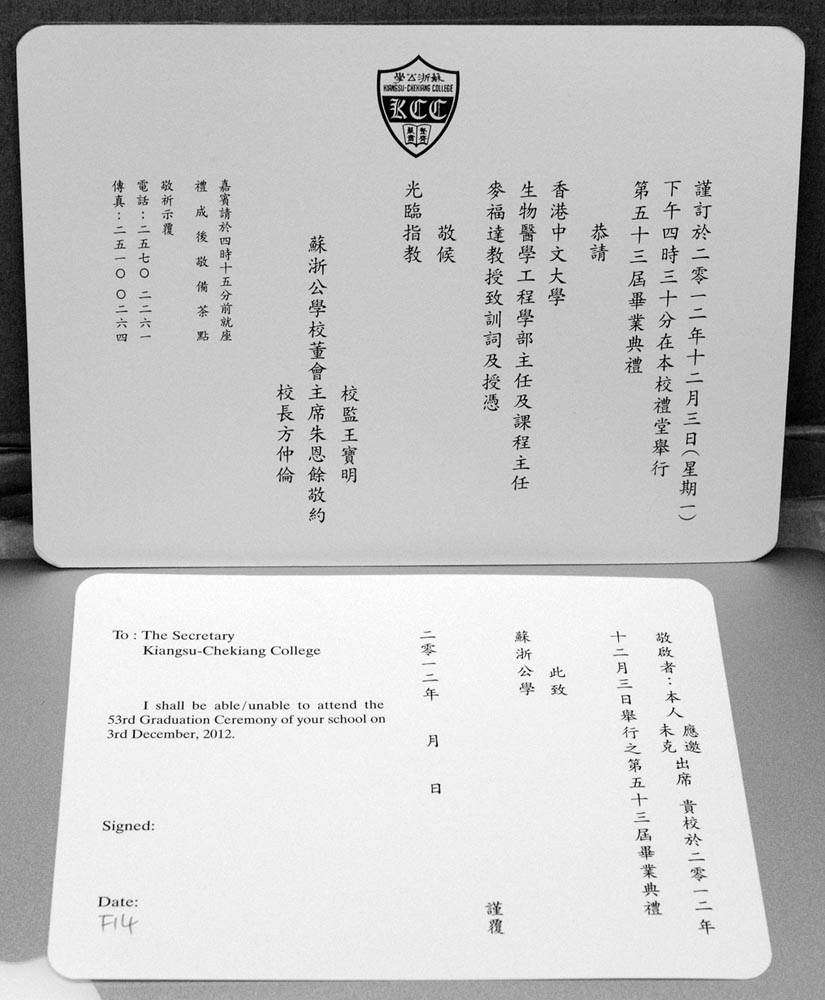 蘇浙公學
KIANGSU-CHEKIANG COLLEGE
KCC
謹訂於二零一二年十二月三日(星期一)
下午四時三十分在本校禮堂舉行
第五十三屆畢業典禮
恭請
香港中文大學
生物醫學工程學部主任及課程主任
麥福達教授致訓詞及授憑
敬候
光臨指教
校監王寶明
蘇浙公學校董會主席朱恩餘敬約
校長方仲倫
嘉賓請於四時十五分前就座
禮成後敬備茶點
敬祈示覆
電話:二五七〇 二二六一
傳真:二五一〇 〇二六四
To : The Secretary
Kiangsu-Chekiang College
I shall be able/unable to attend the
53rd Graduation Ceremony of your school on
3rd December, 2012.
Signed:
Date:
F14
敬啟者:本人 應邀 未克 出席 貴校於二零一二年
十二月三日舉行之第五十三屆畢業典禮
此致
蘇浙公學
謹覆
二零一二年 月 日